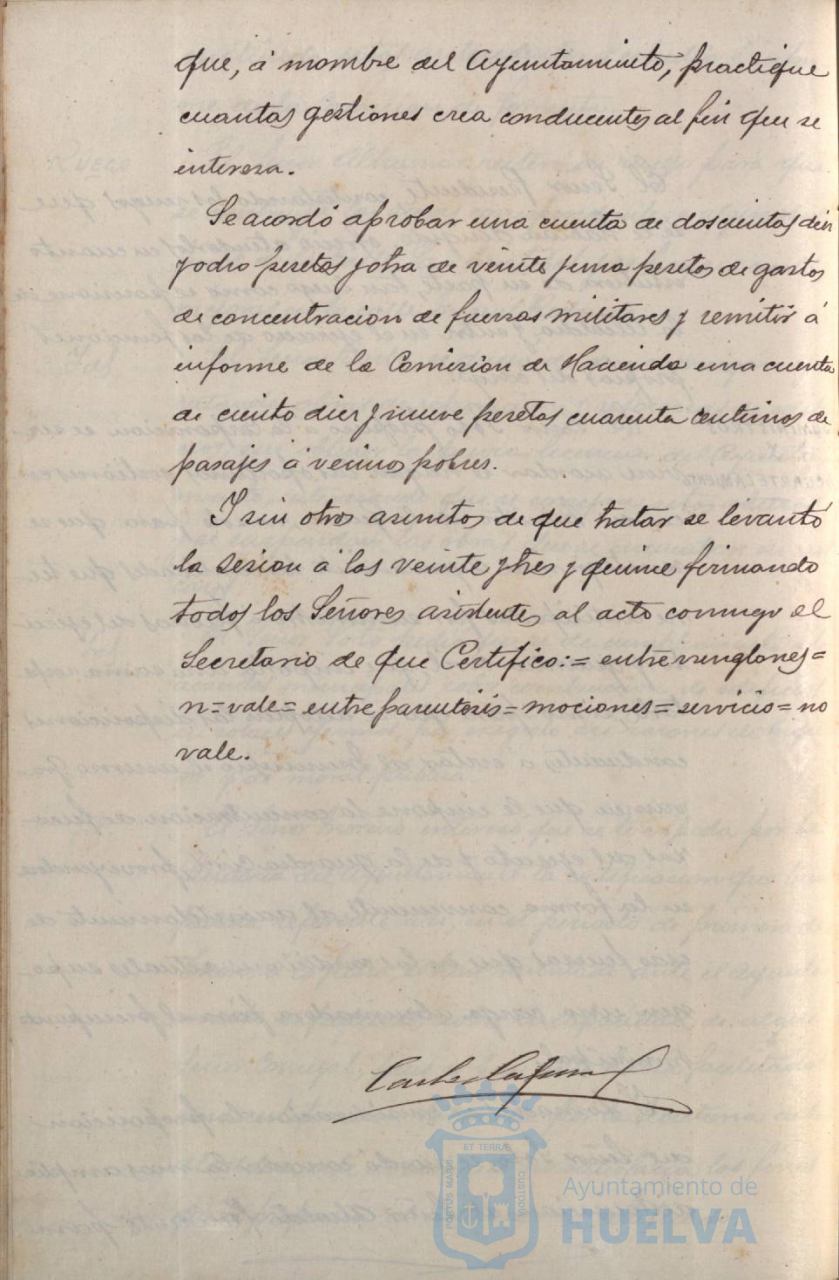 que, á nombre del Ayuntamiento, practique
cuantas gestiones crea conducentes al fin que se
interesa.
Se acordó aprobar una cuenta de doscientas diez
y ocho pesetas y otra de veinte y una pesetas de gastos
de concentracion de fuerzas militares y remitir á
informe de la Comision de Hacienda una cuenta
de ciento diez y nueve pesetas cuarenta centimos de
pasajes á vecinos pobres.
Y sin otros asuntos de que tratar se levantó
la sesion á las veinte y tres y quince firmando
todos los Señores asistentes al acto conmigo el
Secretario de que Certifico:= entre renglones=
n=vale= entre parentesis= mociones= servicio= no
vale.
Carlos
PORTUS MARIS
ET TERRÆ
CUSTODIA
Ayuntamiento de
HUELVA